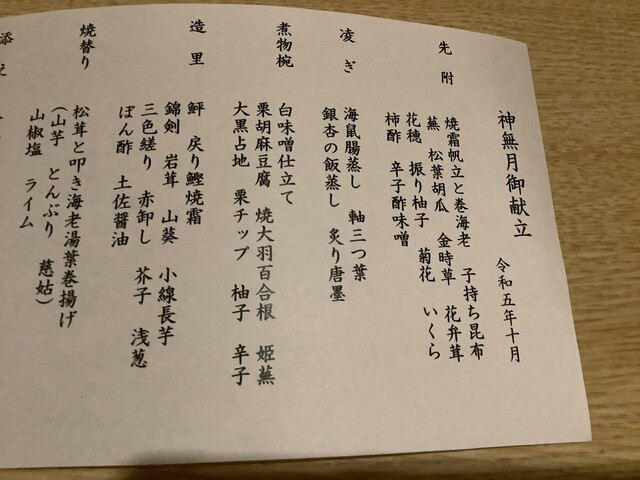 神無月御献立　令和五年十月
先附
焼霜帆立と巻海老　子持ち昆布
蕪　松葉胡瓜　金時草　花弁茸
花穂　振り柚子　菊花　いくら
柿酢　辛子酢味噌
凌ぎ
海鼠腸蒸し　軸三つ葉
銀杏の飯蒸し　炙り唐墨
煮物椀
白味噌仕立て
栗胡麻豆腐　焼大羽百合根　姫蕪
大黒占地　栗チップ　柚子　辛子
造里
鮃　戻り鰹焼霜
錦剣　岩茸　山葵　小線長芋
三色縒り　赤卸し　芥子　浅葱
ぽん酢　土佐醤油
焼替り
松茸と叩き海老湯葉巻揚げ
（山芋　とんぶり　慈姑）
山椒塩　ライム
添え